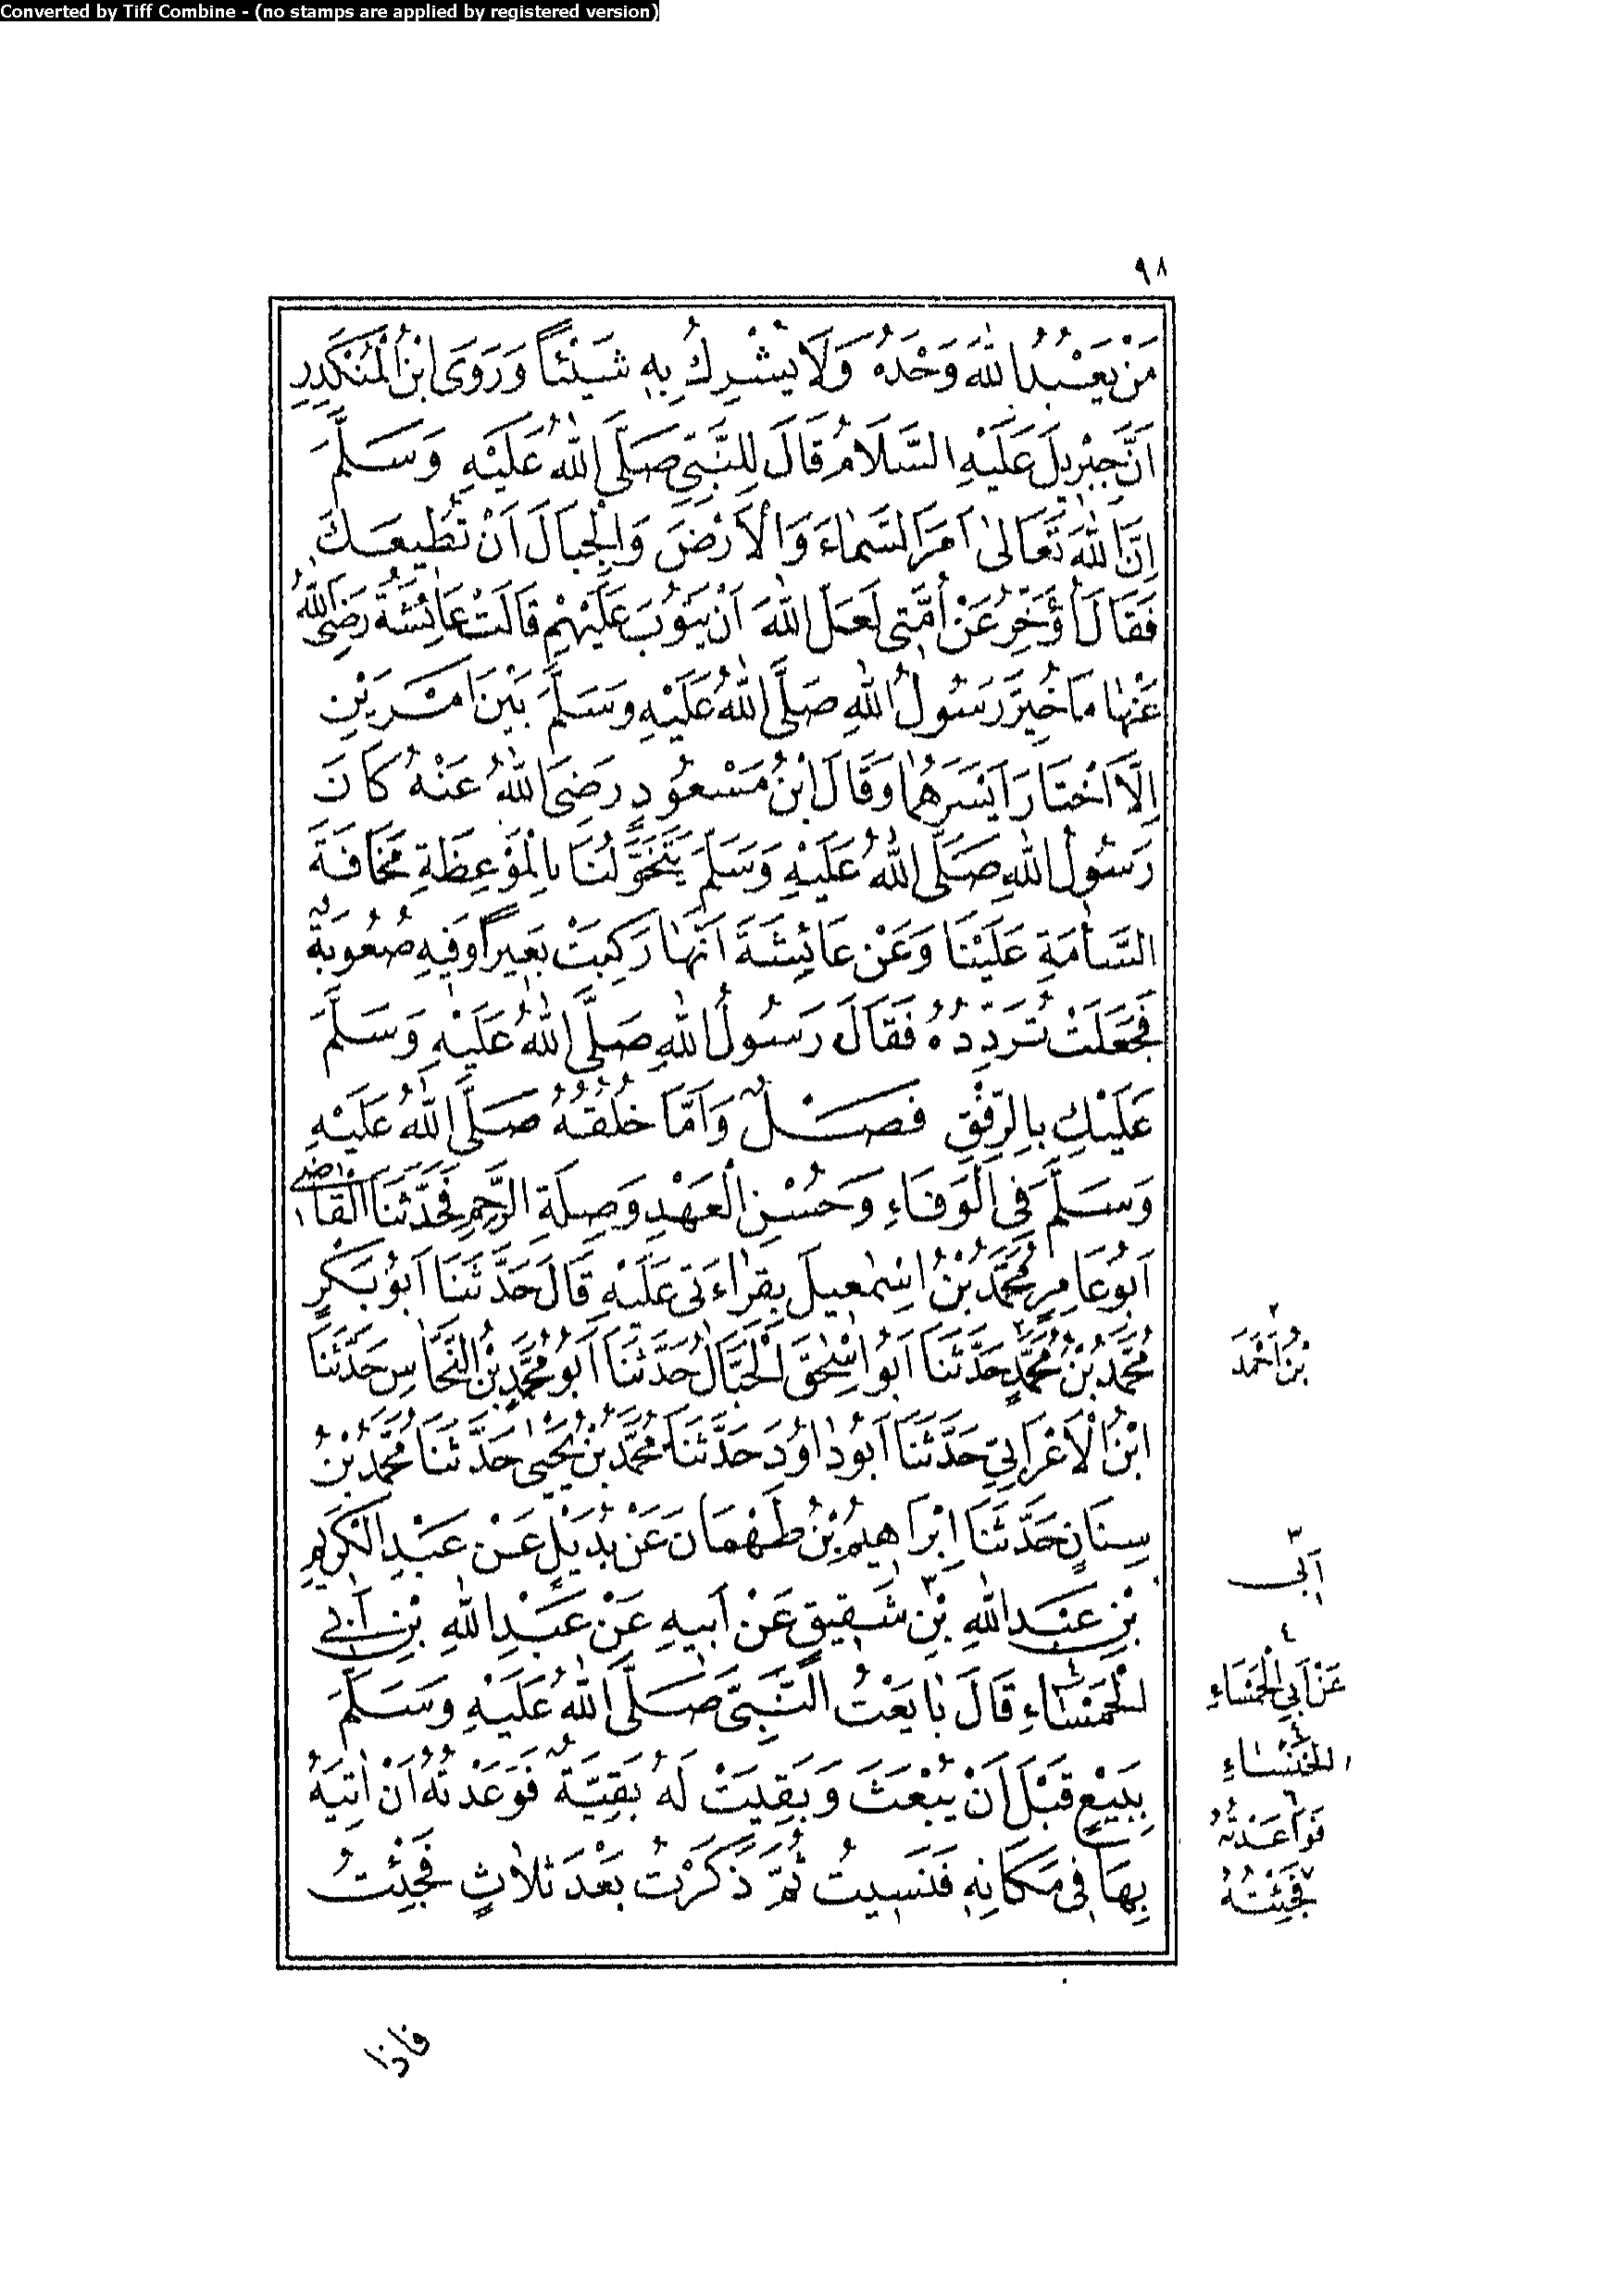 Converted by Tiff Combine - (no stamps are applied by registered version)
٩٨
مَنْ يَعْبُدُ اللهَ وَحْدَهُ وَلَا يُشْرِكُ بِهِ شَيْئًا وَرَوَى ابْنُ الْمُنْكَدِرِ
اَنَّ جِبْرِيلَ عَلَيْهِ السَّلَامُ قَالَ لِلنَّبِيِّ صَلَّى اللهُ عَلَيْهِ وَسَلَّمَ
اِنَّ اللهَ تَعَالٰى اَمَرَ السَّمَاءَ وَالْاَرْضَ وَالْجِبَالَ اَنْ تُطِيعَكَ
فَقَالَ اُؤَخِّرُ عَنْ اُمَّتِى لَعَلَّ اللهَ اَنْ يَتُوبَ عَلَيْهِمْ قَالَتْ عَائِشَةُ رَضِىَ اللهُ
عَنْهَا مَا خُيِّرَ رَسُولُ اللهِ صَلَّى اللهُ عَلَيْهِ وَسَلَّمَ بَيْنَ اَمْرَيْنِ
اِلَّا اخْتَارَ اَيْسَرَهُمَا وَقَالَ ابْنُ مَسْعُودٍ رَضِىَ اللهُ عَنْهُ كَانَ
رَسُولُ اللهِ صَلَّى اللهُ عَلَيْهِ وَسَلَّمَ يَتَخَوَّلُنَا بِالْمَوْعِظَةِ مَخَافَةَ
السَّاٰمَةِ عَلَيْنَا وَعَنْ عَائِشَةَ اَنَّهَا رَكِبَتْ بَعِيراً وَفِيهِ صُعُوبَةٌ
فَجَعَلَتْ تُرَدِّدُهُ فَقَالَ رَسُولُ اللهِ صَلَّى اللهُ عَلَيْهِ وَسَلَّمَ
عَلَيْكِ بِالرِّفْقِ فَصْلٌ وَاَمَّا خُلُقُهُ صَلَّى اللهُ عَلَيْهِ
وَسَلَّمَ فِى الْوَفَاءِ وَحُسْنِ الْعَهْدِ وَصِلَةِ الرَّحِمِ فَحَدَّثَنَا الْقَاضِى
اَبُو عَامِرٍ مُحَمَّدُ بْنُ اِسْمٰعِيلَ بِقِرَاءَتِى عَلَيْهِ قَالَ حَدَّثَنَا اَبُو بَكْرٍ
مُحَمَّدُ بْنُ مُحَمَّدٍ٢ حَدَّثَنَا اَبُو اِسْحٰقَ الْحَبَّالُ حَدَّثَنَا اَبُو مُحَمَّدِ بْنُ النَّحَّاسِ حَدَّثَنَا
ابْنُ الْاَعْرَابِيِّ حَدَّثَنَا اَبُو دَاوُدَ حَدَّثَنَا مُحَمَّدُ بْنُ يَحْيٰى حَدَّثَنَا مُحَمَّدُ بْنُ
سِنَانٍ حَدَّثَنَا اِبْرَاهِيمُ بْنُ طَهْمَانَ عَنْ بُدَيْلٍ عَنْ عَبْدِ الْكَرِيمِ
بْنِ عَبْدِ اللهِ بْنِ٣ شَقِيقٍ عَنْ اَبِيهِ عَنْ عَبْدِ اللهِ بْنِ اَبِى
الْحَمْسَاءِ٤ قَالَ بَايَعْتُ النَّبِيَّ صَلَّى اللهُ عَلَيْهِ وَسَلَّمَ
بِبَيْعٍ قَبْلَ اَنْ يُبْعَثَ وَبَقِيَتْ لَهُ بَقِيَّةٌ فَوَعَدْتُهُ اَنْ اٰتِيَهُ
بِهَا فِى مَكَانِهِ فَنَسِيتُ ثُمَّ ذَكَرْتُ بَعْدَ ثَلَاثٍ فَجِئْتُ
٢
بْنُ اَحْمَدَ
٣
اَبِى
٤
عَنْ اَبِى الْحَمْسَاءِ
الْخَنْسَاءِ
٦
فَوَاعَدْتُهُ
٧
فَجِئْتُهُ
فاذا